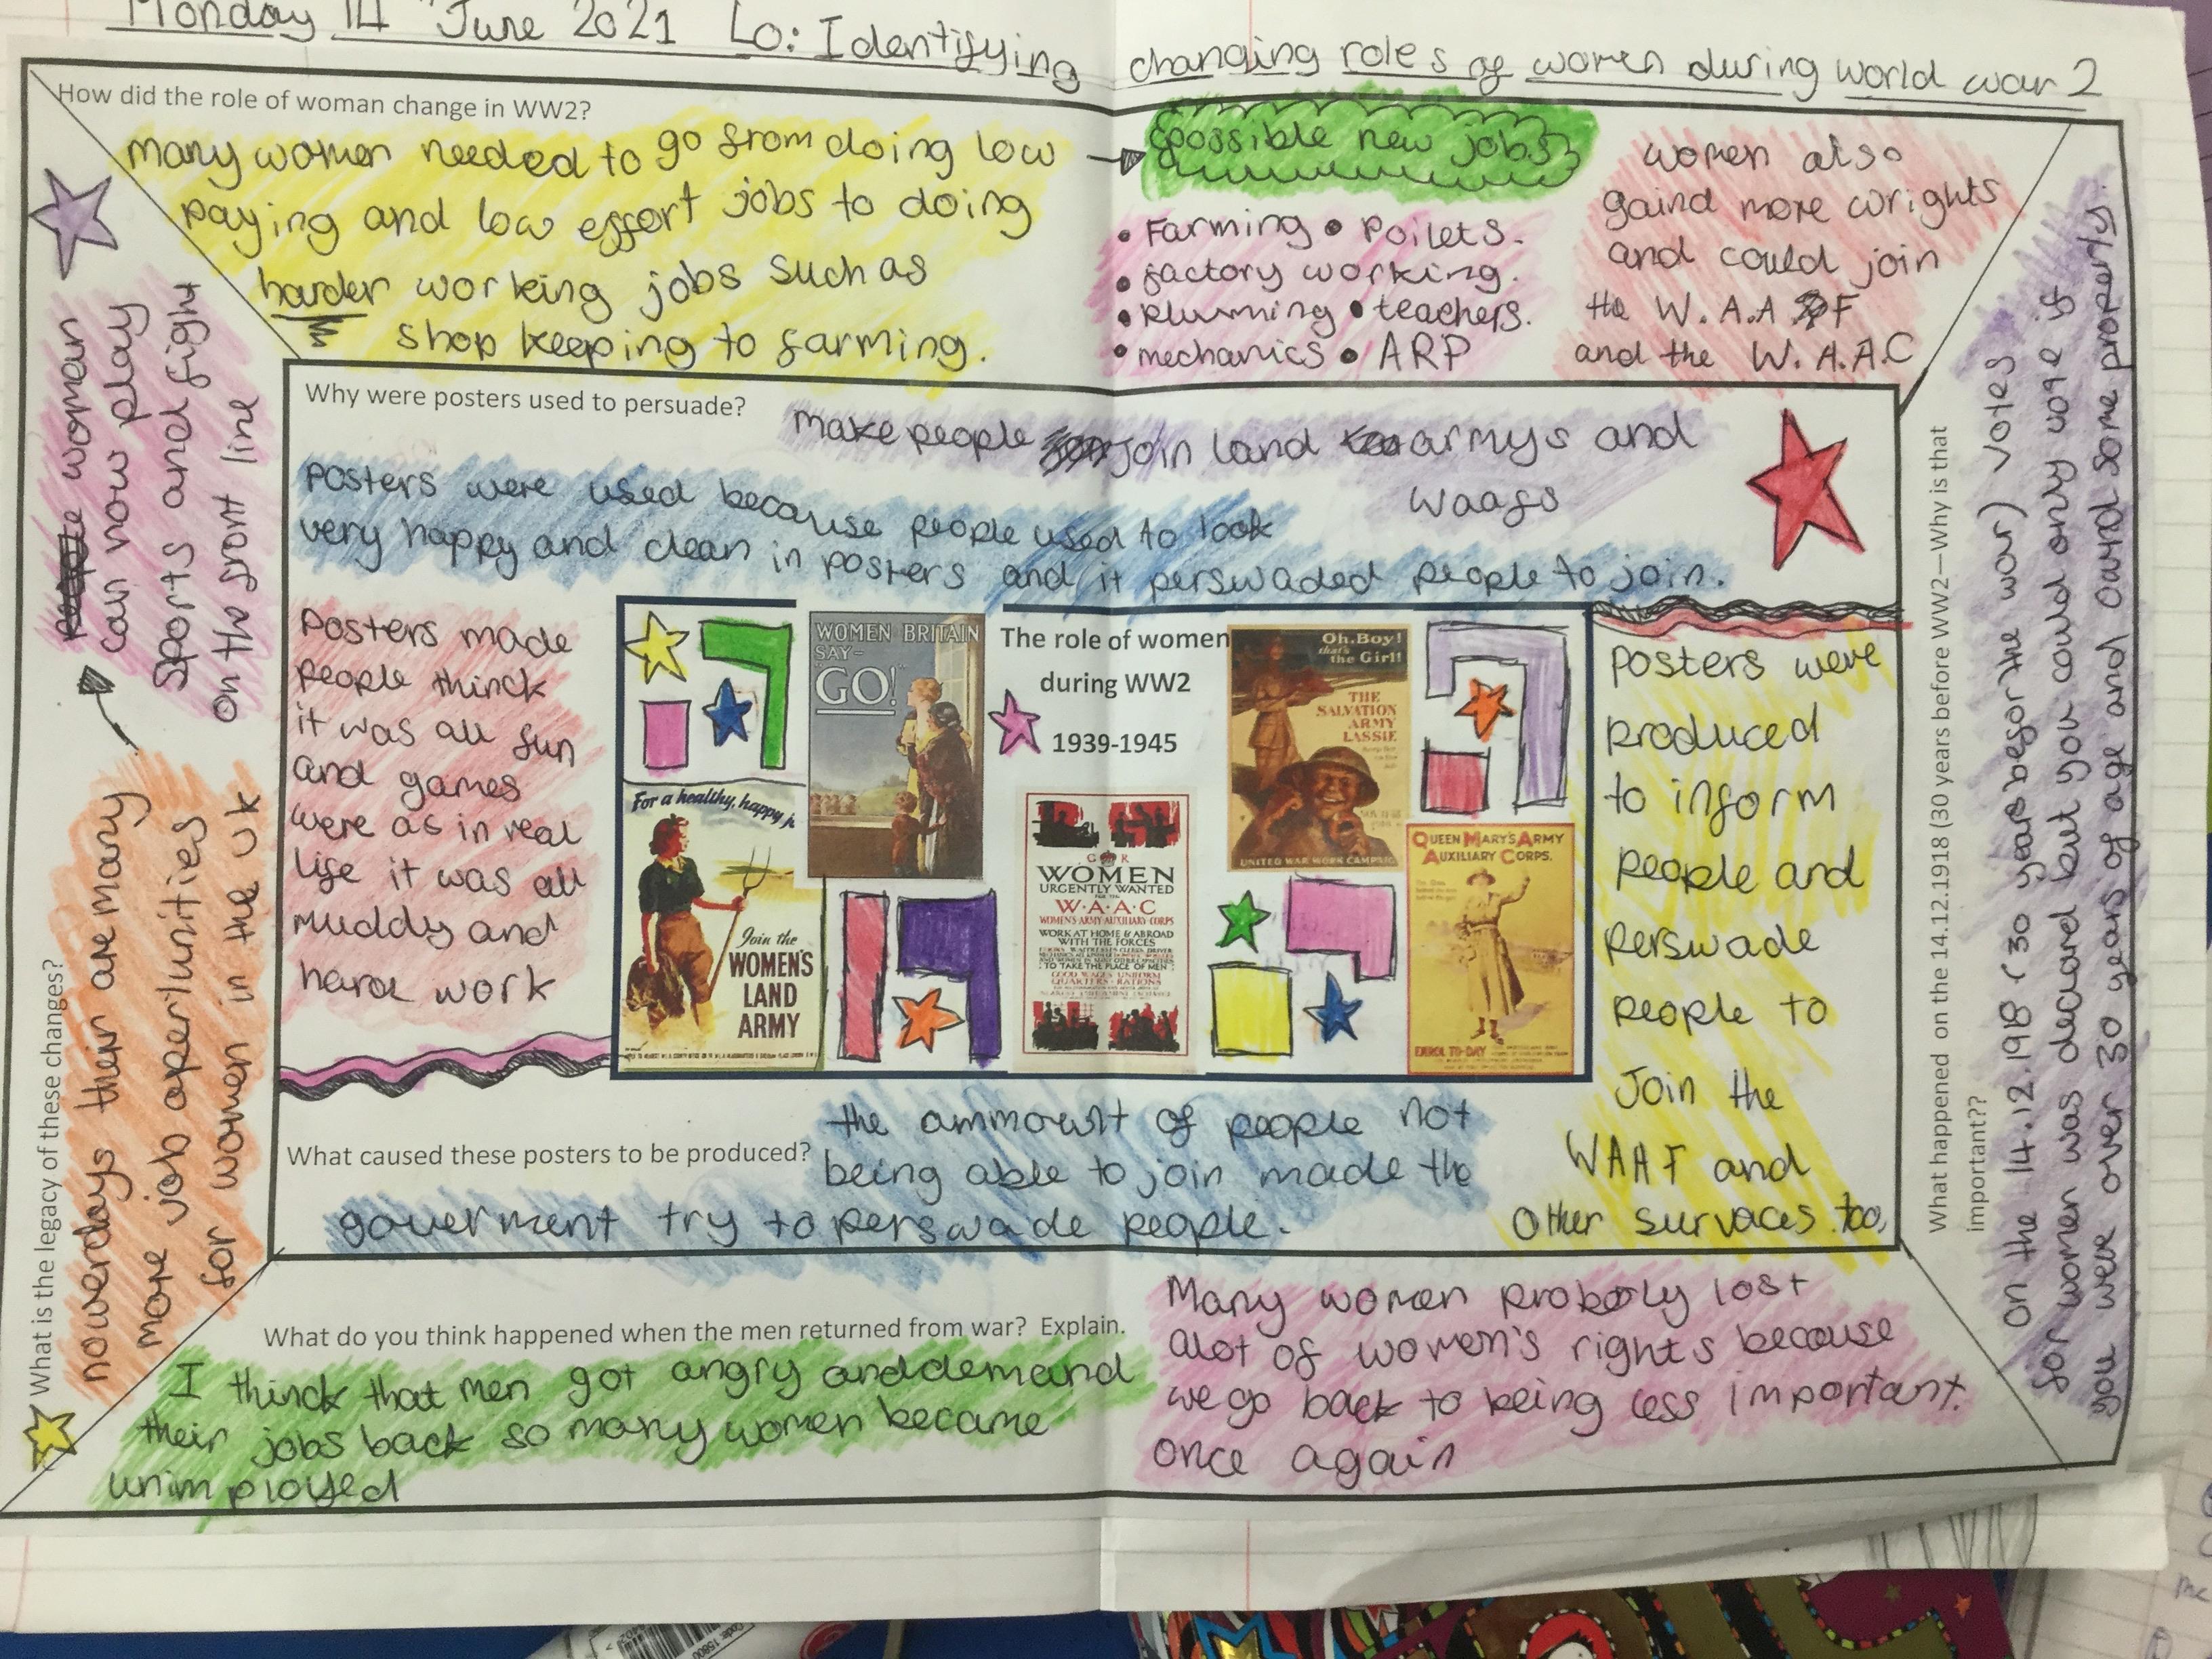 Monday 14th June 2021 Lo: Identifying changing roles of women during world war 2
How did the role of woman change in WW2?
many women needed to go from doing low
paying and low effort jobs to doing
harder working jobs such as
shop keeping to farming.
possible new jobs
• Farming • Poilets.
• factory working.
• Plumming • teachers.
• mechanics • ARP
women also
gaind more wrights
and could join
the W.A.A F
and the W.A.A.C
Why were posters used to persuade?
make people join land armys and
waafs
Posters were used because people used to look
very happy and clean in posters and it perswaded people to join.
Posters made
people thinck
it was all fun
and games
were as in real
life it was all
muddy and
hard work
WOMEN BRITAIN
SAY-
"GO!"
The role of women
during WW2
1939-1945
Oh, Boy!
that's
the Girl!
THE
SALVATION
ARMY
LASSIE
UNITED WAR WORK CAMPAIGN
For a healthy, happy j
Join the
WOMEN'S
LAND
ARMY
G R
WOMEN
URGENTLY WANTED
FOR THE
W·A·A·C
WOMEN'S ARMY AUXILIARY CORPS
WORK AT HOME & ABROAD
WITH THE FORCES
TO TAKE THE PLACE OF MEN
GOOD WAGES UNIFORM
QUARTERS · RATIONS
QUEEN MARY'S ARMY
AUXILIARY CORPS.
ENROL TO-DAY
Posters were
produced
to inform
people and
perswade
people to
Join the
WAAF and
other survaces too,
What caused these posters to be produced?
the ammount of people not
being able to join made the
goverment try to perswade people.
What do you think happened when the men returned from war? Explain.
I thinck that men got angry and demand
their jobs back so many women became
unimployed
Many women probobly lost
alot of women's rights because
we go back to being less important.
once again
What is the legacy of these changes?
nowerdays their are many
more job opertunities
for women in the uk
woman
can now play
sports and fight
on the front line
What happened on the 14.12.1918 (30 years before WW2—Why is that
important??
on the 14.12.1918 (30 years befor the war) votes
for women was decuard but you could only vote if
you were over 30 years of age and ownd some property.